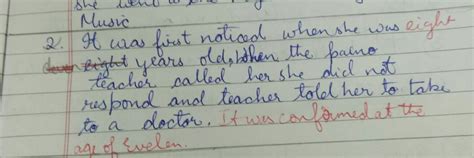 she went to the
Music
2. It was first noticed when she was eight
years old, When the paino
teacher called her she did not
respond and teacher told her to take
to a doctor. It was confirmed at the
age of Evelen.